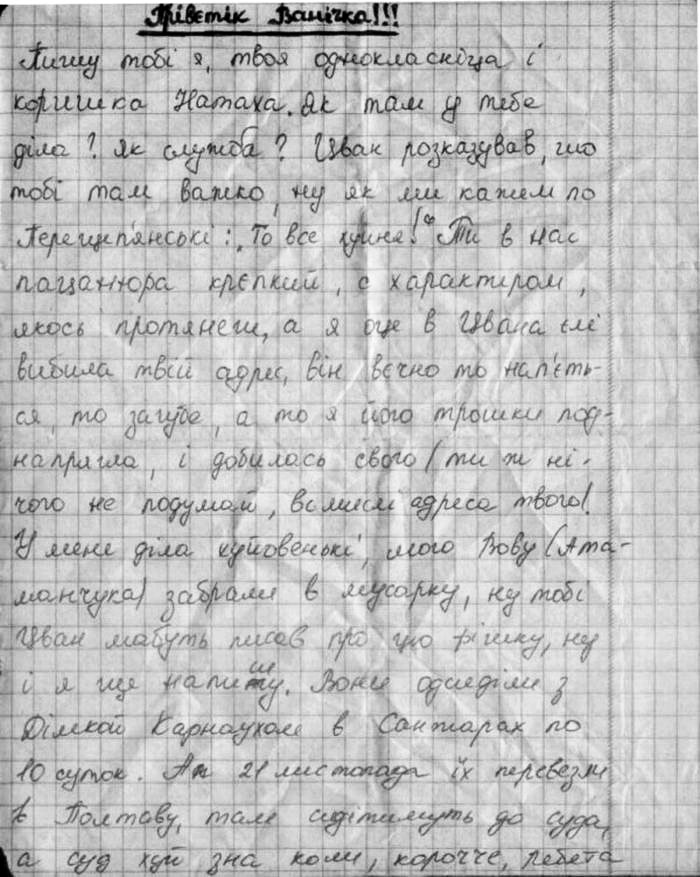 Прівєтік Ванічка!!!
Пишу тобі я, твоя однокласніца і
коришка Натаха. Як там у тебе
діла? Як служба? Цван розказував, шо
тобі там важко, ну як ми кажем по
Перещеп'янські: "То все хуйня!" Ти в нас
пацанюра крєпкий, с характіром,
якось протянеш, а я оце в Цвана єлі
вибила твій адрес, він вєчно то нап'єть-
ся, то загубе, а то я його трошки под-
напрягла, і добилась свого (ти ж ні-
чого не подумай, в смислі адреса твого).
У мене діла хуйовенькі, мого Вову (Ата-
манчука) забрали в мусарку, ну тобі
Цван мабуть писав про цю фішку, ну
і я ще напишу. Вони одсиділи з
Дімкой Карнаухом в Санжарах по
10 суток. А 21 листопада їх перевезли
в Полтаву, там сидітимуть до суда,
а суд хуй зна коли, корочче, ребята